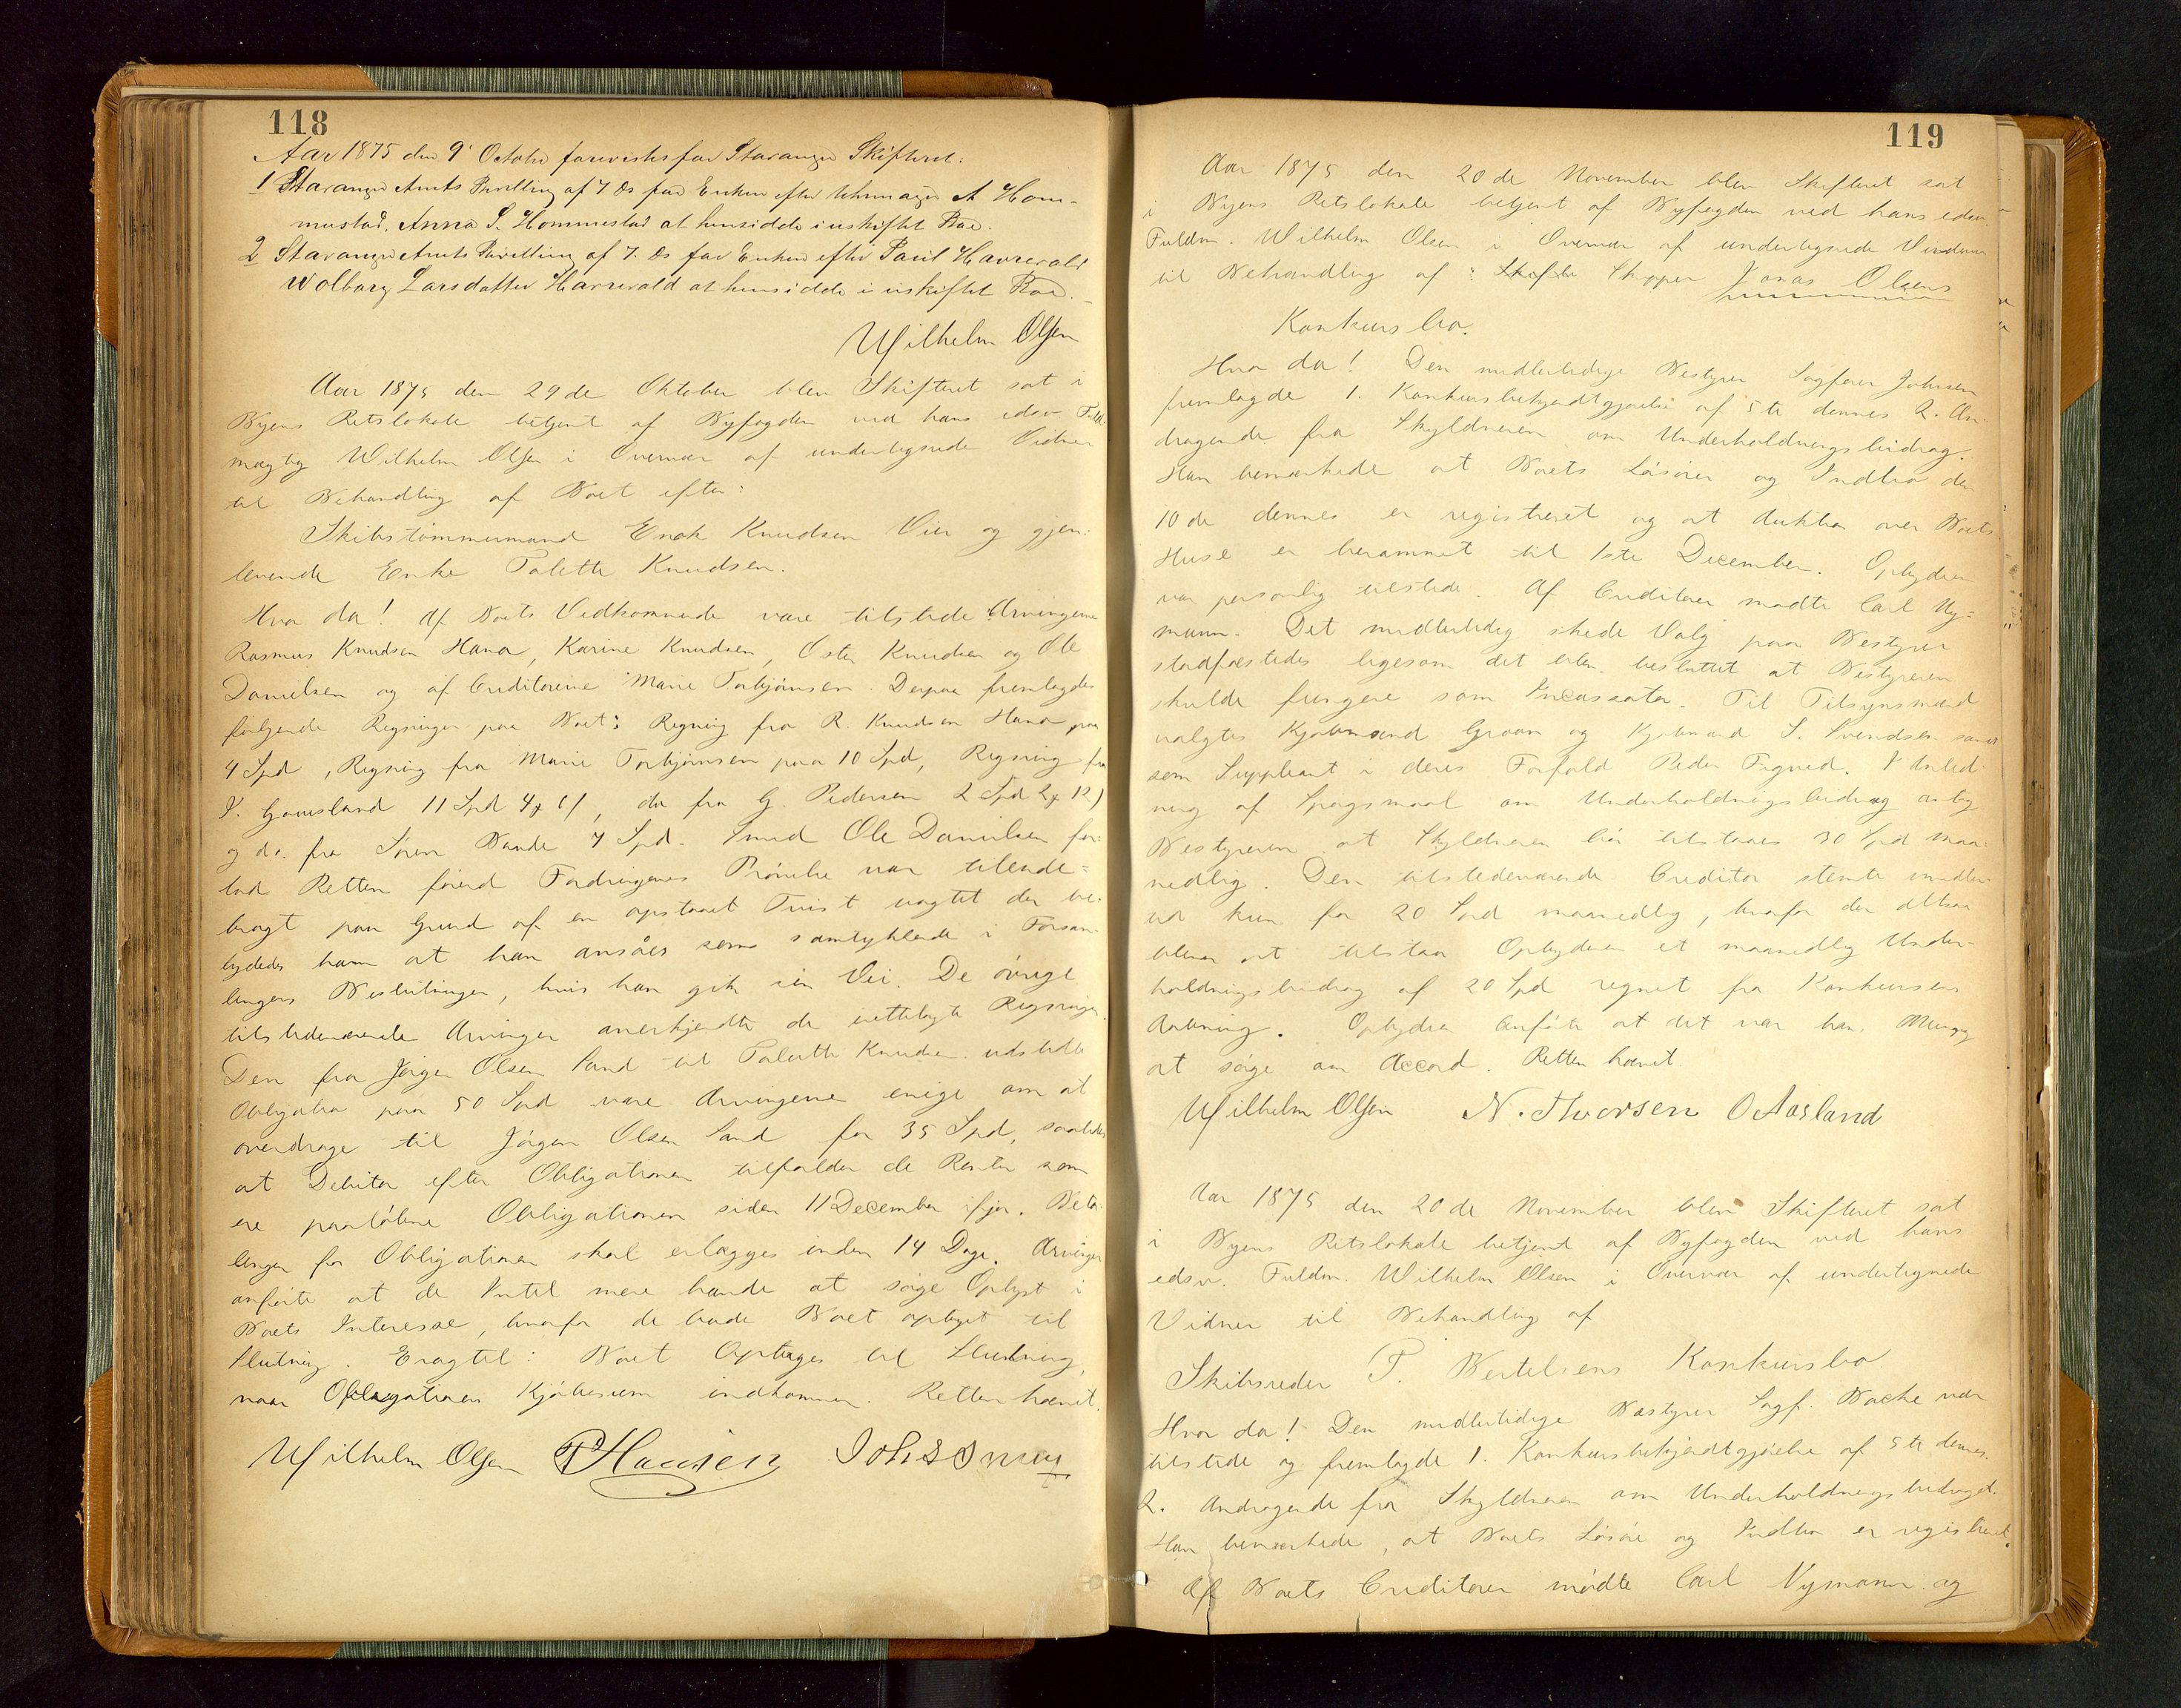 118
Aar 1875 den 9' Octobr forevistes for Stavanger Skifteret:
1 Stavanger Amts Bevilling af 7 ds for Enken efter Uhrmager A Hom-
mestad, Anna S. Hommestad at hensidde i uskiftet Boe.
2 Stavanger Amts Bevilling af 7 ds for Enken efter Paul Havrevold
Wolborg Larsdatter Havrevold at hensidde i uskiftet Boe.
Wilhelm Olsen
Aar 1875 den 29de Oktober blev Skifteret sat i
Byens Retslokale betjent af Byfogden ved hans edsv. Fuld-
mægtig Wilhelm Olsen i Overvær af undertegnede Vidner
til Behandling af Boet efter:
Skibstömmermand Enok Knudsen Vier og gjen-
levende Enke Talette Knudsen.
Hvor da! Af Boets Vedkommende vare tilstede Arvingerne
Rasmus Knudsen Hana, Karine Knudsen, Osten Knudsen og Ole
Danielsen og af Creditorerne Marie Torbjörnsen. Derpaa fremlagdes
fölgende Regninger paa Boet: Regning fra R. Knudsen Hana paa
4 Spd, Regning fra Marie Torbjörnsen paa 10 Spd, Regning fra
Gousland 11 Spd, do fra G. Pedersen 2 Spd
og do. fra Sören Bande 7 Spd. Smed Ole Danielsen for-
lod Retten förend Fordringernes Prövelse var tilende-
bragt paa Grund af en opstaaet Tvist uagtet der be-
tydedes ham at han ansåes som samtykkende i Forsam-
lingens Beslutninger, hvis han gik sin Vei. De övrige
tilstedeværende Arvinger anerkjendte de irettelagte Regninger.
Den fra Jörgen Olsen Sand til Talette Knudsen udstedte
Obligation paa 50 Spd vare Arvingerne enige om at
overdrage til Jörgen Olsen Sand for 35 Spd, saaledes
at Debitor efter Obligationen tilfalder de Renter som
ere paalöbne Obligationen siden 11 December ifjor. Beta-
lingen for Obligationen skal erlægges inden 14 Dage. Arvingerne
anförte at de Intet mere havde at söge Oplyst i
Boets Interesse, hvorfor de bade Boet optaget til
Slutning. Eragtet: Boet Optages til Slutning,
naar Obligationens Kjöbesum indkommer. Retten hævet.
Wilhelm Olsen P Hansen
119
Aar 1875 den 20de November blev Skifteret sat
i Byens Retslokale betjent af Byfogden ved hans edsv.
Fuldm. Wilhelm Olsen i Overvær af undertegnede Vidner
til Behandling af: Skifte Skipper Jonas Olsens
Konkursbo.
Hvor da! Den midlertidige Bestyrer Sagförer Johnsen
fremlagde 1. Konkursbekjendtgjörelse af 5te dennes 2. An-
dragende fra Skyldneren om Underholdningsbidrag.
Han bemærkede at Boets Lösöre og Indbo den
10de dennes er registreret og at Auktion over Boets
Huse er berammet til 1ste December. Opbyderen
var personlig tilstede. Af Creditorer mödte Carl Ny-
mann. Det midlertidig skede Valg paa Bestyrer
stadfæstedes ligesom det blev besluttet at Bestyreren
skulde fungere som Incassator. Til Tilsynsmænd
valgtes Kjöbmand Graan og Kjöbmand S. Svendsen samt
som Suppleant i deres Forfald Peder Figved. I Anled-
ning af Spögsmaal om Underholdningsbidrag antog
Bestyreren at Skyldneren bör tilstaaes 30 Spd maa-
nedlig. Den tilstedeværende Creditor stemte imidler-
tid kun for 20 Spd maanedlig, hvorfor der altsaa
bliver at tilstaa Opbyderen et maanedlig Under-
holdningsbidrag af 20 Spd regnet fra Konkursens
Aabning. Opbyderen anförte at det var hans Mening
at söge om Accord. Retten hævet
Wilhelm Olsen N. Thorsen O Aasland
Aar 1875 den 20de November blev Skifteret sat
i Byens Retslokale betjent af Byfogden ved hans
edsv. Fuldm. Wilhelm Olsen i Overvær af undertegnede
Vidner til Behandling af
Skibsreder P. Bertelsens Konkursbo
Hvor da! Den midlertidige Bestyrer Sagf. Backe var
tilstede og fremlagde 1. Konkursbekjendtgjörelse af 5te dennes.
2. Andragende fra Skyldneren om Underholdningsbidraget.
Han bemærkede, at Boets Lösöre og Indbo er registreret.
Af Boets Creditorer mödte Carl Nymann og